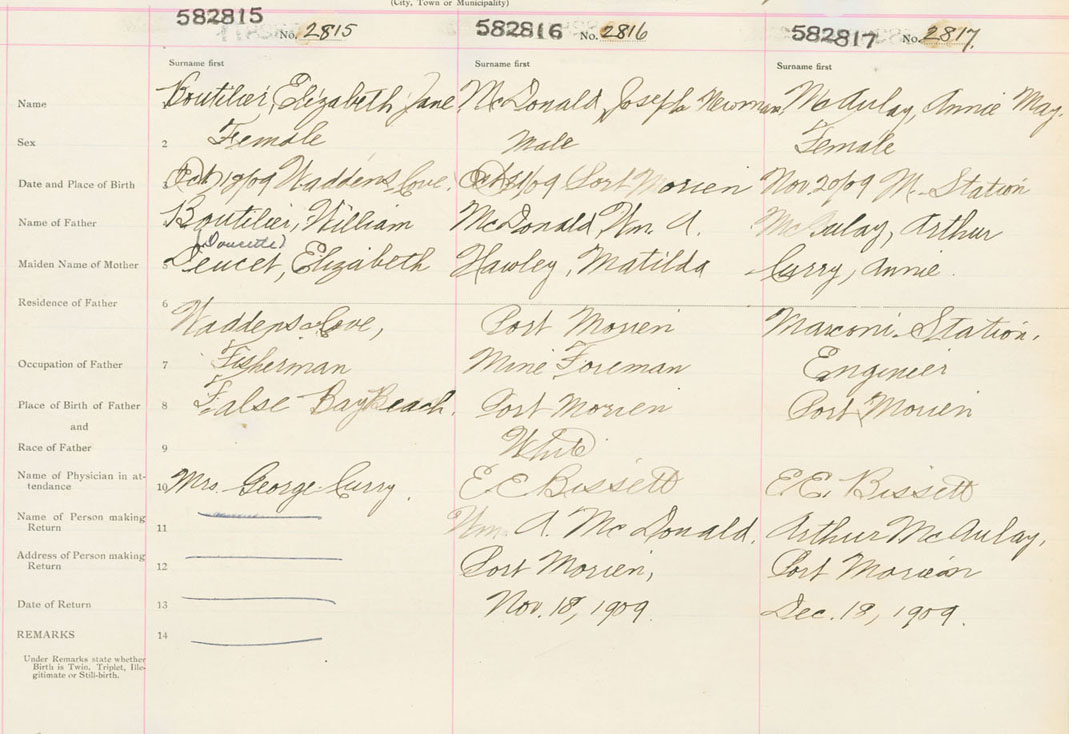 (City, Town or Municipality)
582815 No. 2815 582816 No. 2816 582817 No. 2817.
Surname first Surname first Surname first
Name Boutilier, Elizabeth Jane McDonald, Joseph Newman McAulay, Annie May.
Sex 2 Female Male Female
Date and Place of Birth 3 Oct 18/09 Waddens Cove. Oct 31/09 Port Morien Nov. 20/09 M. Station
Name of Father Boutilier, William McDonald, Wm. A. McAulay, Arthur
(Doucette)
Maiden Name of Mother 5 Deucet, Elizabeth Hawley, Matilda Curry, Annie.
Residence of Father 6 Waddens Cove, Port Morien Marconi Station.
Occupation of Father 7 Fisherman Mine Foreman Engineer
Place of Birth of Father 8 False Bay Beach. Port Morien Port Morien
and
Race of Father 9 White
Name of Physician in at-
tendance 10 Mrs. George Curry. E. E. Bissett E. E. Bissett
Name of Person making
Return 11 Wm. A. McDonald. Arthur McAulay,
Address of Person making
Return 12 Port Morien, Port Morien
Date of Return 13 Nov. 18, 1909. Dec. 18, 1909.
REMARKS 14
Under Remarks state whether
Birth is Twin, Triplet, Ille-
gitimate or Still-birth.